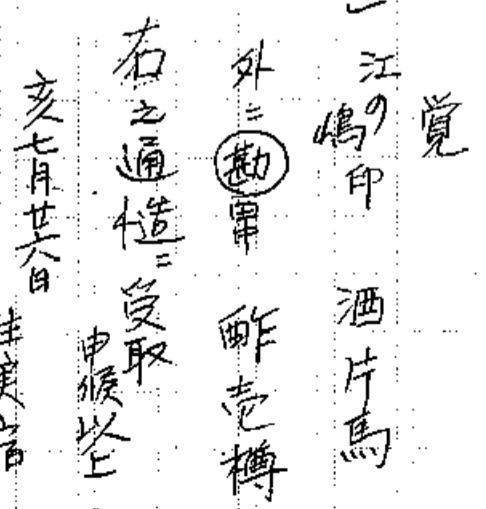 覚
一 江の嶋印 酒片馬
外ニ 勘 印 酢壱樽
右之通慥ニ受取
申候以上
亥七月廿六日